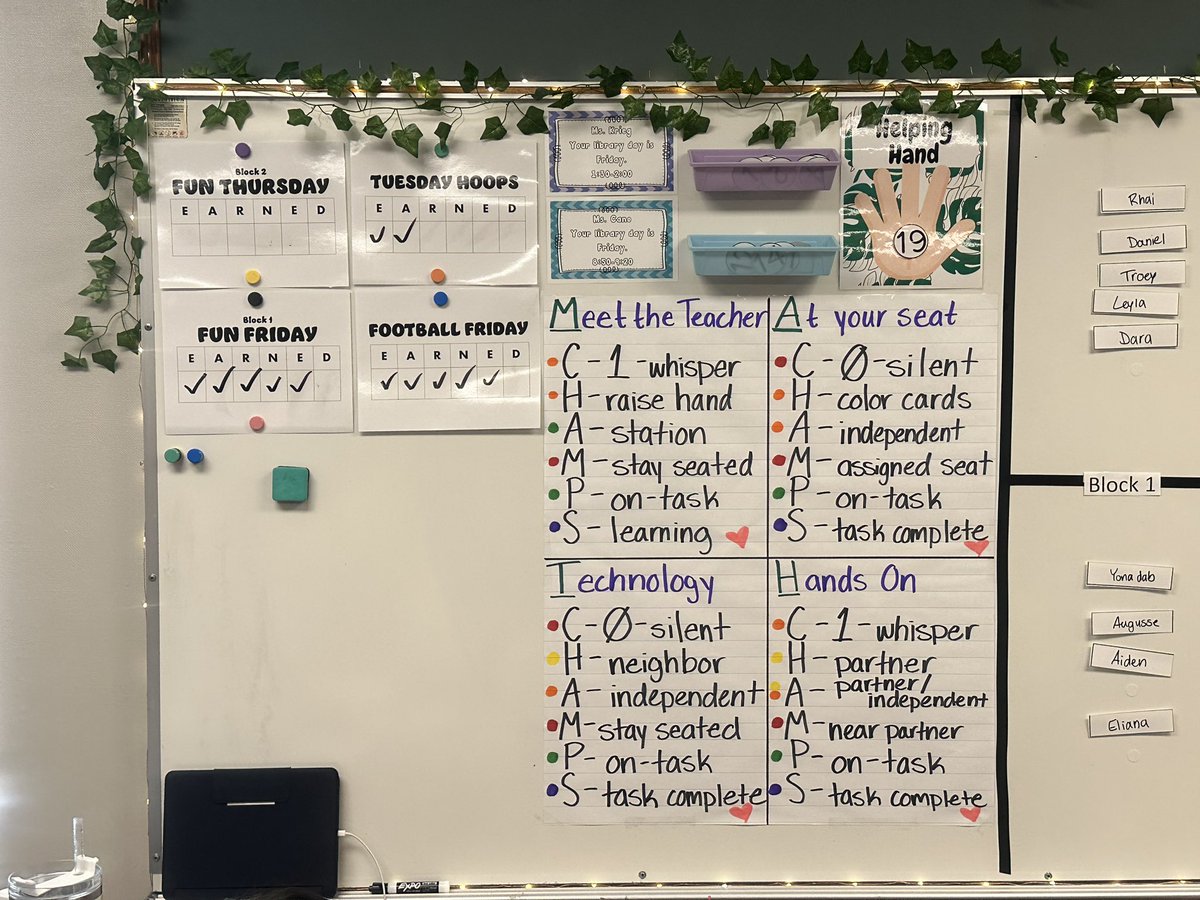 Block 2
FUN THURSDAY
E A R N E D
TUESDAY HOOPS
E A R N E D
Block 1
FUN FRIDAY
E A R N E D
FOOTBALL FRIDAY
E A R N E D
Ms. Krieg
Your library day is
Friday.
1:30-2:00
Ms. Cano
Your library day is
Friday.
8:50-9:20
Helping
Hand
19
Meet the Teacher
C - 1 - whisper
H - raise hand
A - station
M - stay seated
P - on-task
S - learning
At your seat
C - 0 - silent
H - color cards
A - independent
M - assigned seat
P - on-task
S - task complete
Technology
C - 0 - silent
H - neighbor
A - independent
M - stay seated
P - on-task
S - task complete
Hands On
C - 1 - whisper
H - partner
A - partner/
independent
M - near partner
P - on-task
S - task complete
Rhai
Daniel
Troey
Leyla
Dara
Block 1
Yonadab
Augusse
Aiden
Eliana
EXPO